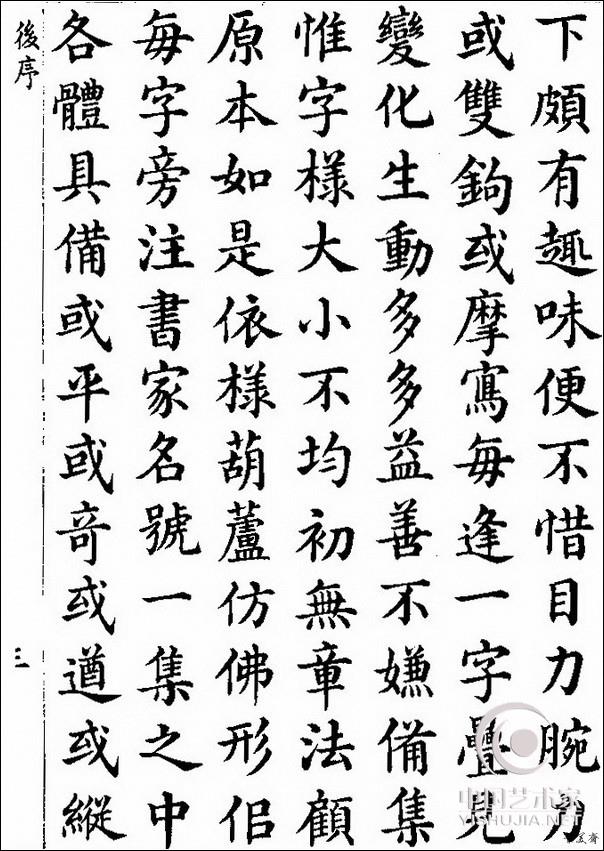 下頗有趣味便不惜目力腕力
或雙鉤或摩寫每逢一字疊見
變化生動多多益善不嫌備集
惟字樣大小不均初無章法顧
原本如是依樣葫蘆仿佛形佀
每字旁注書家名號一集之中
各體具備或平或奇或遒或縱
後序
三
中国艺术家
YISHUJIA.NET